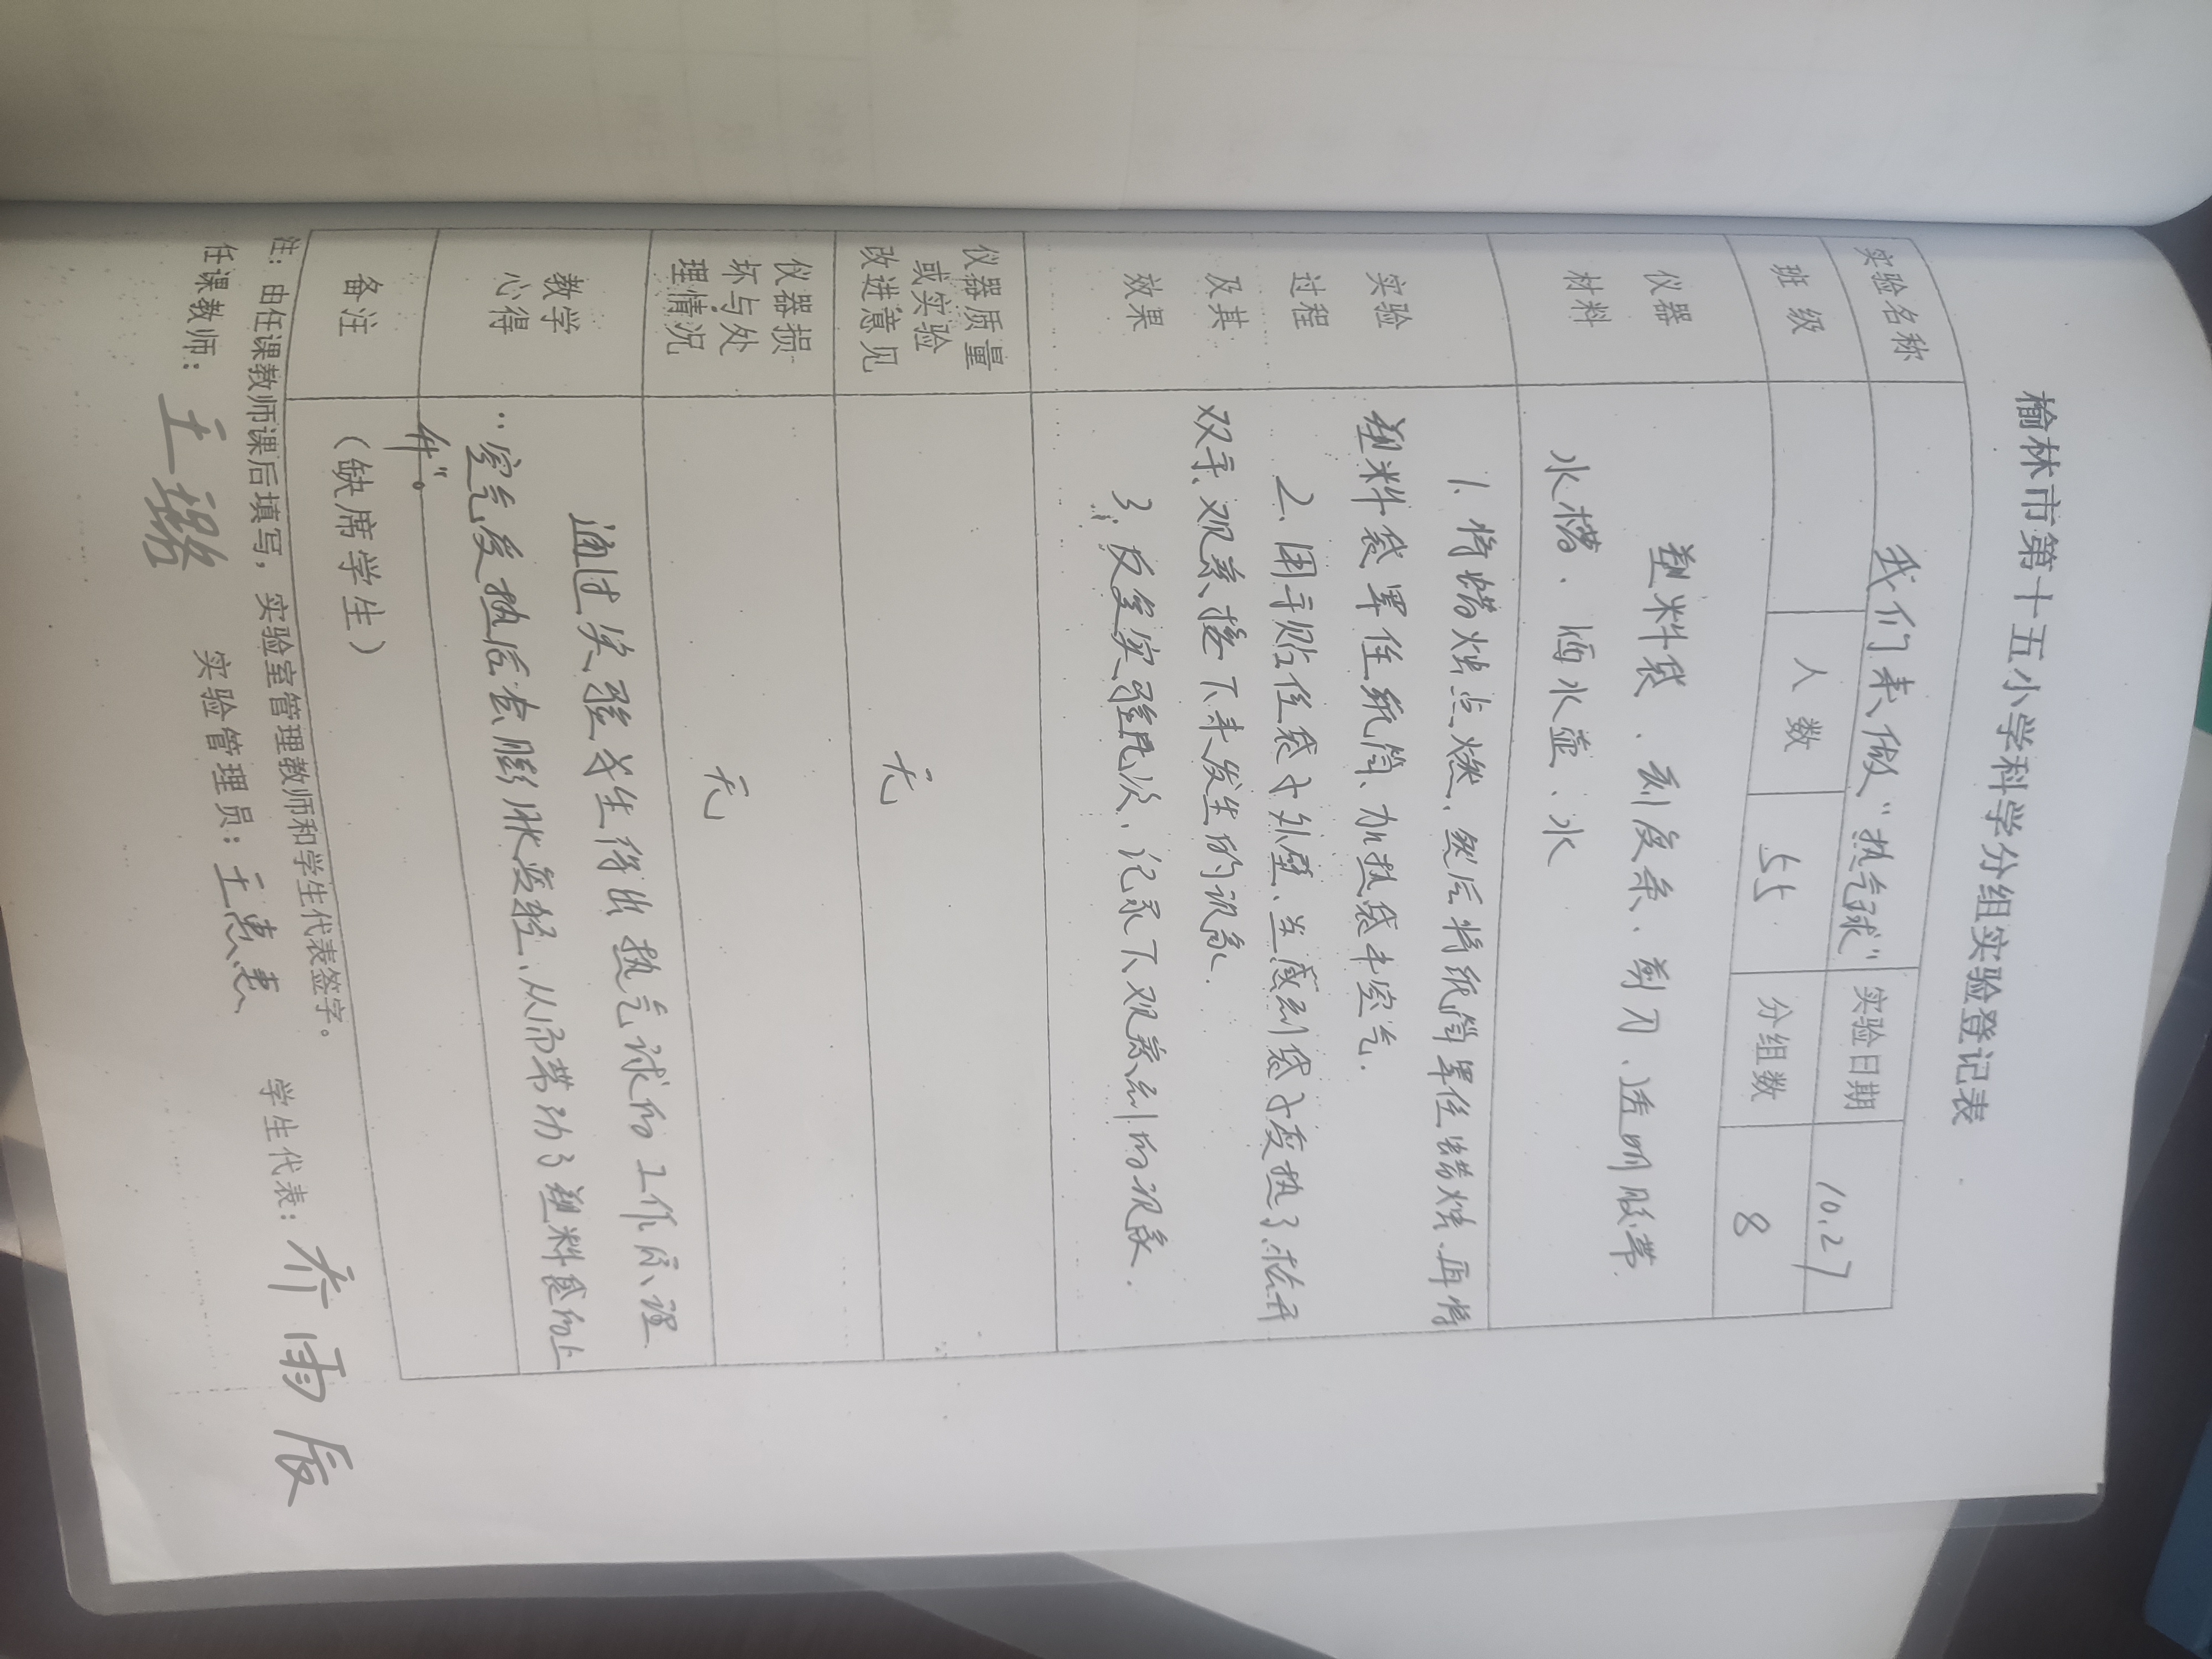 榆林市第十五小学科学分组实验登记表
实验名称 我们来做“热气球” 实验日期 10.27
班级 人数 55 分组数 8
仪器材料 塑料袋、刻度条、剪刀、透明胶带
水槽、洒水壶、水
实验过程及其效果 1、将蜡烛点燃、然后将纸筒罩住蜡烛、再将
塑料袋罩住纸筒、加热袋中空气.
2、用手贴住袋子外壁、当感到袋子变热了、松开
双手、观察接下来发生的现象.
3、反复实验几次、记录下观察到的现象.
仪器质量或实验改进意见 无
仪器损坏与处理情况 无
教学心得 通过实验学生得出热气球的工作原理
“空气受热后会膨胀变轻、从而带动了塑料袋的上
升”。
备注 (缺席学生)
注：由任课教师课后填写，实验室管理教师和学生代表签字。
任课教师：王璐 实验管理员：王惠惠 学生代表：乔雨辰